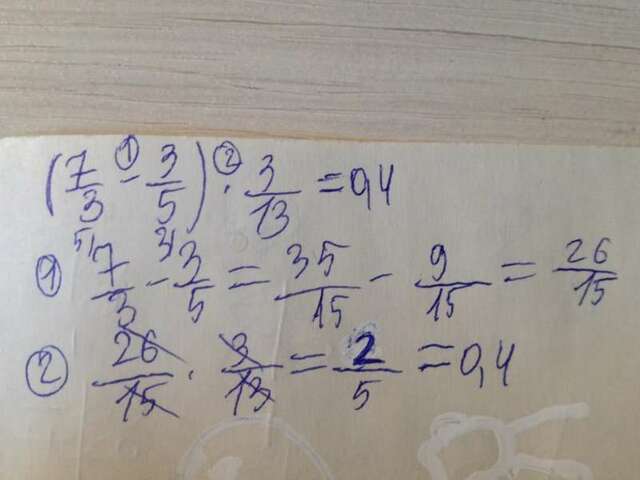 (7/3 - ① 3/5) ② · 3/13 = 0,4
① 5) 7/3 - 3) 3/5 = 35/15 - 9/15 = 26/15
② 26/15 · 3/13 = 2/5 = 0,4